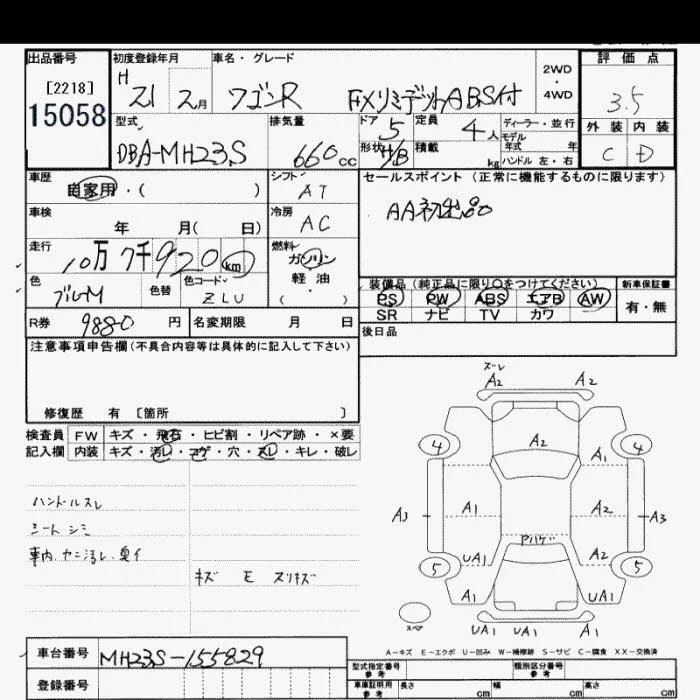 出品番号 初度登録年月 車名・グレード 評価点
[2218] H 21 2月 ワゴンR FXリミテッドABS付 2WD・4WD 3.5
15058
型式 排気量 ドア 5 定員 4人 ディーラー・並行 外装 内装
DBA-MH23S 660cc 形状 H/B 積載 kg モデル年式 年 C D
ハンドル 左・右
車歴 自家用・( ) シフト AT セールスポイント (正常に機能するものに限ります)
車検 年 月( 日) 冷房 AC AA初出品
走行 10万7千920km 燃料 ガソリン
軽油
( ・ )
色 ブルーM 色替 色コード ZLU 装備品 (純正品に限り○をつけてください) 新車保証書
PS PW ABS エアB AW 有・無
SR ナビ TV カワ
R券 9880円 名変期限 月 日 後日品
注意事項申告欄(不具合内容等は具体的に記入して下さい)
修復歴 有 〔箇所 〕
検査員 FW キズ・飛石・ヒビ割・リペア跡・×要
記入欄 内装 キズ・汚レ・コゲ・穴・スレ・キレ・破レ
ハンドルスレ
シートシミ
車内ヤニ汚レ.臭イ
キズ E スリキズ
ズレ
A2 A2
4 A2 4
A1
A3 A1 A2 A3
Pハゲ
UA1 A2
5 5
A1 UA1
スペア
UA1 UA1 A1
A-キズ E-エクボ U-凹み W-補修跡 S-サビ C-腐食 XX-交換済
車台番号 MH23S-155829 型式指定番号 参考 類別区分番号 参考
登録番号 車庫証明用 参考 長さ cm 幅 cm 高さ cm